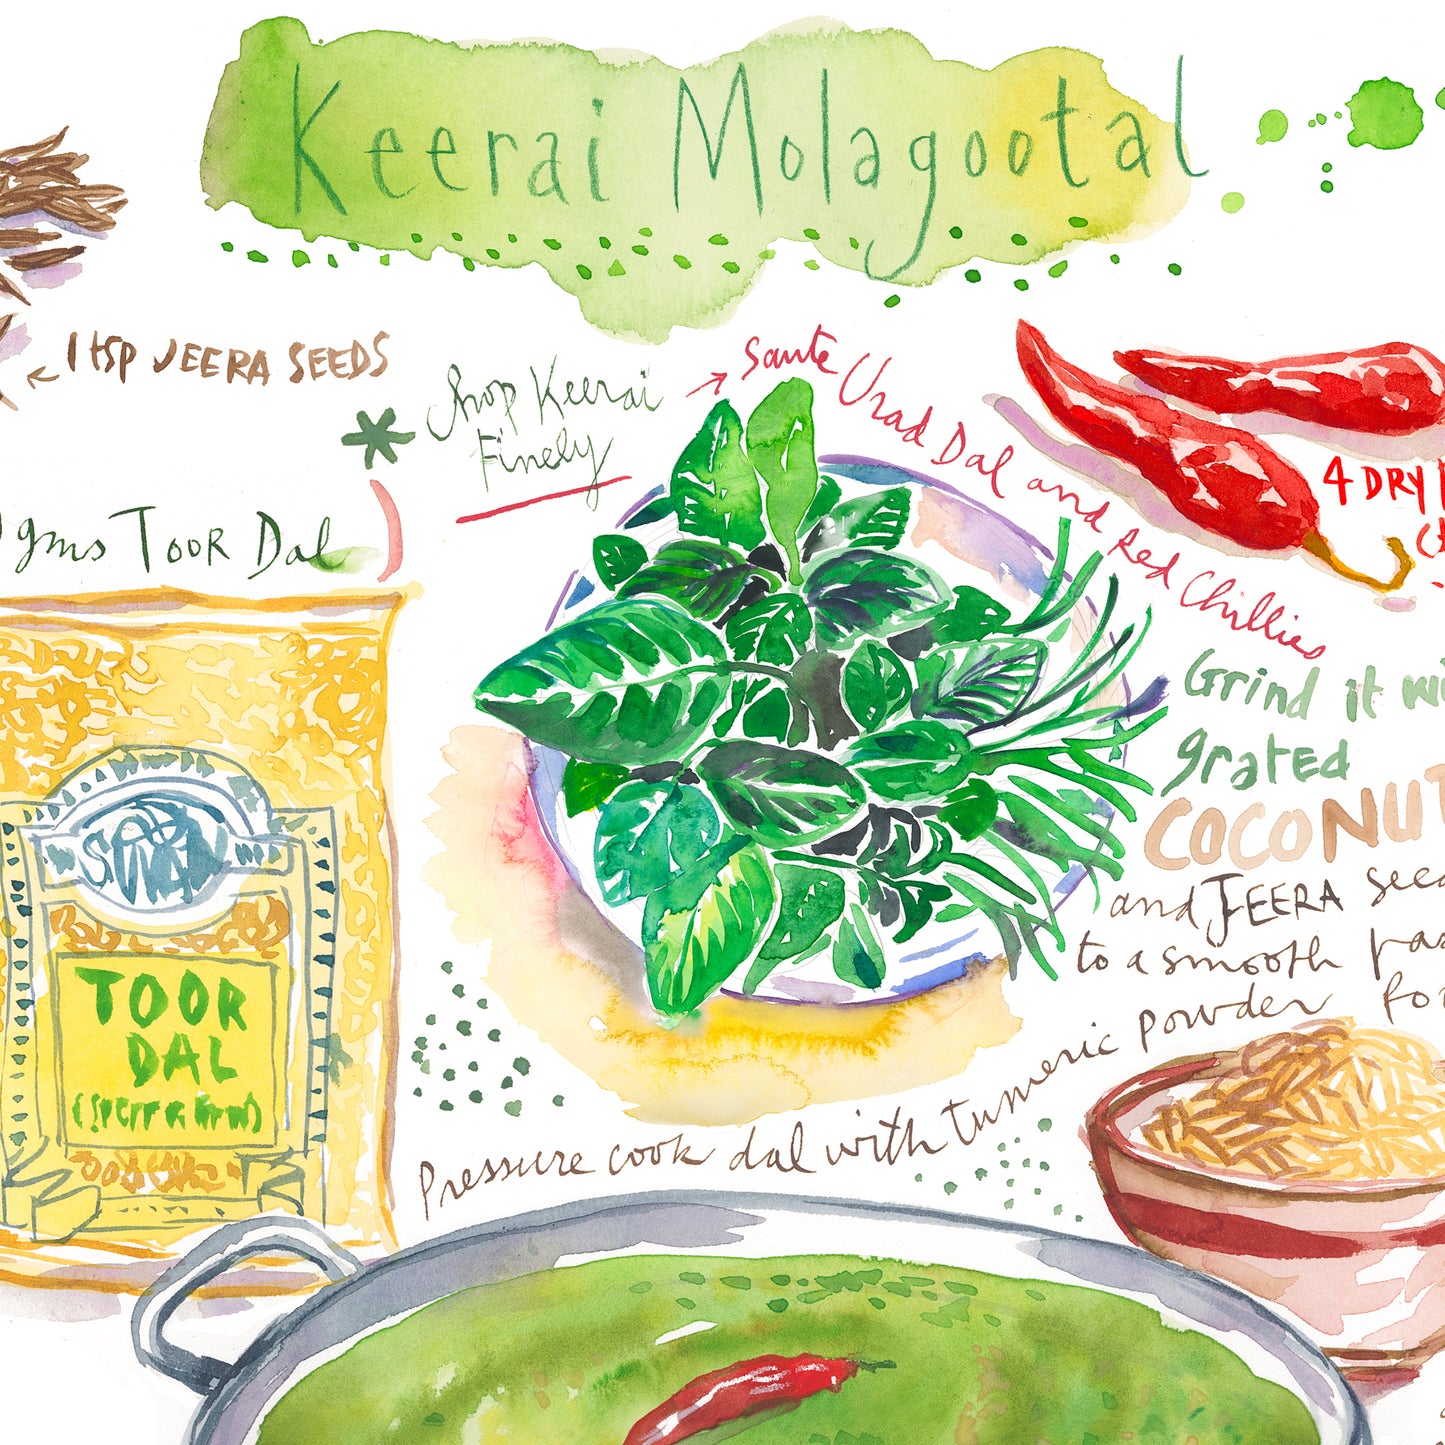 Keerai Molagootal
1 tsp JEERA SEEDS
Chop Keerai
Finely
Saute Urad Dal and Red Chillies
4 DRY
gms TOOR Dal
Grind it
grated
COCONUT
and JEERA
to a smooth
powder
Pressure cook dal with turmeric
TOOR
DAL